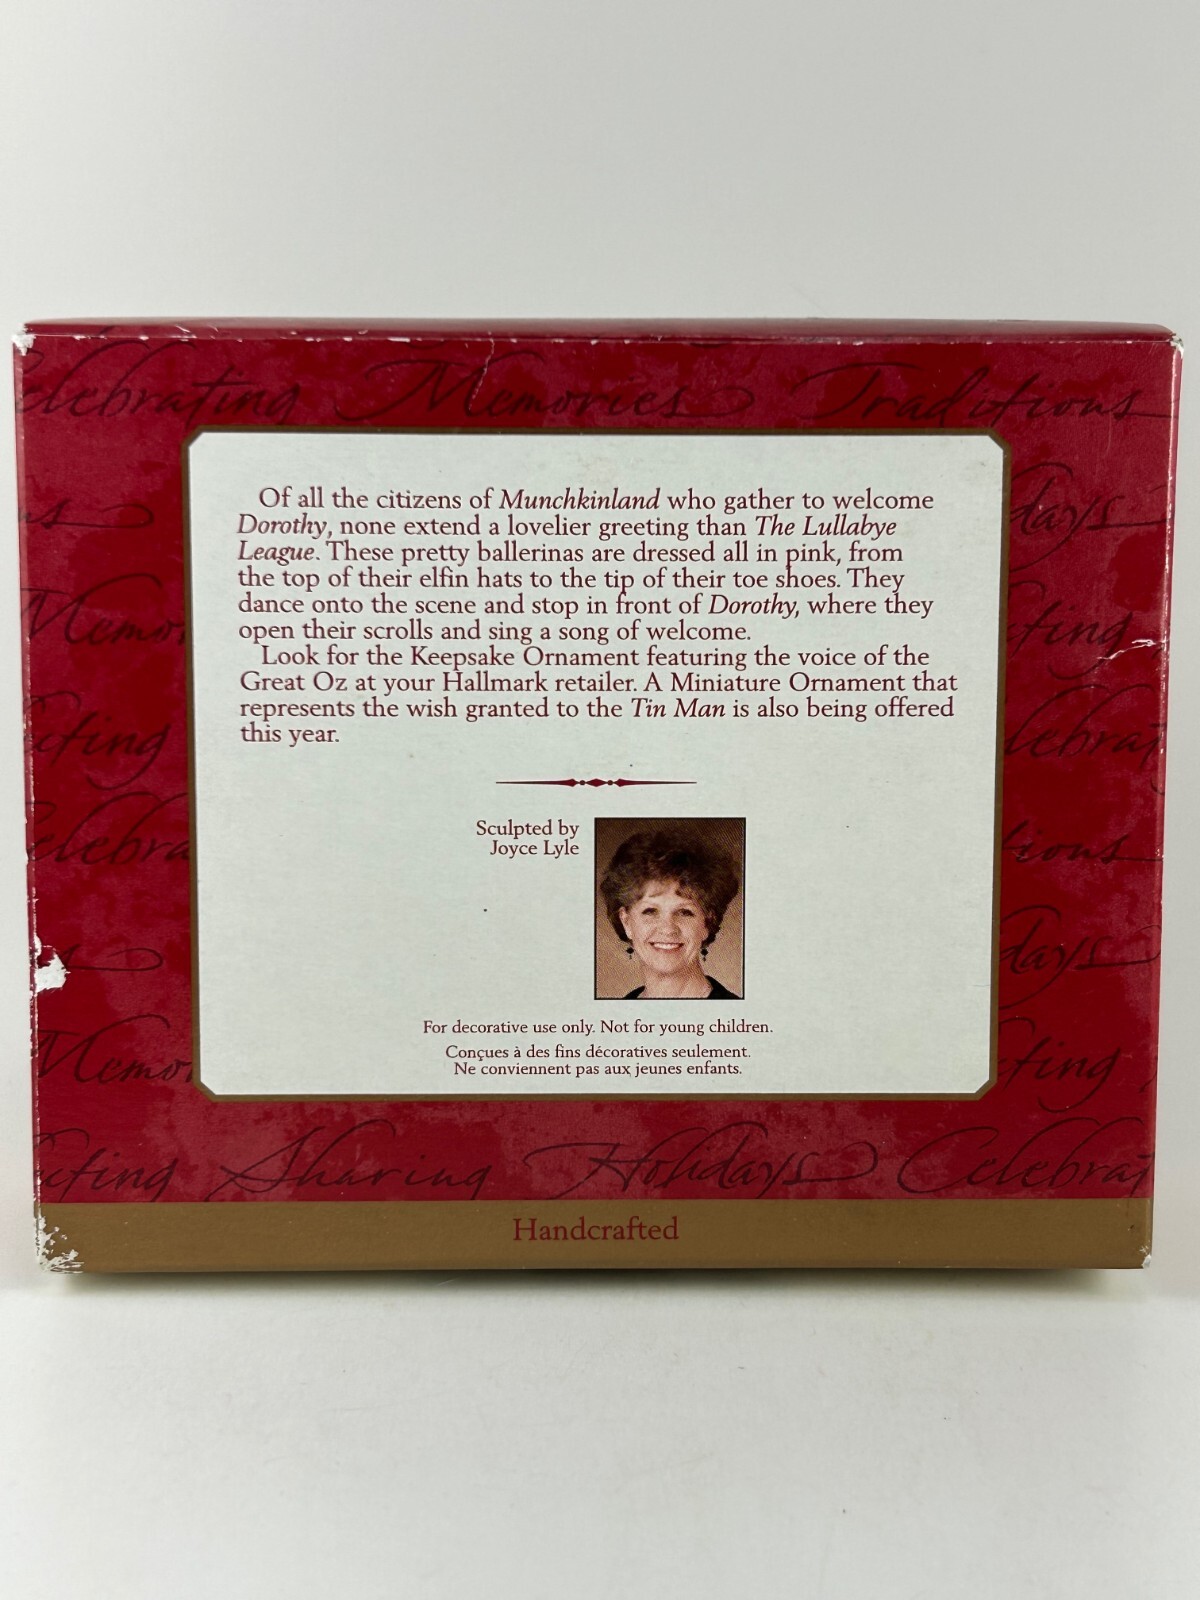 elebrating Memories Traditions
Of all the citizens of Munchkinland who gather to welcome
Dorothy, none extend a lovelier greeting than The Lullabye
League. These pretty ballerinas are dressed all in pink, from
the top of their elfin hats to the tip of their toe shoes. They
dance onto the scene and stop in front of Dorothy, where they
open their scrolls and sing a song of welcome.
Look for the Keepsake Ornament featuring the voice of the
Great Oz at your Hallmark retailer. A Miniature Ornament that
represents the wish granted to the Tin Man is also being offered
this year.
Sculpted by
Joyce Lyle
For decorative use only. Not for young children.
Conçues à des fins décoratives seulement.
Ne conviennent pas aux jeunes enfants.
Sharing Holidays Celebrat
Handcrafted